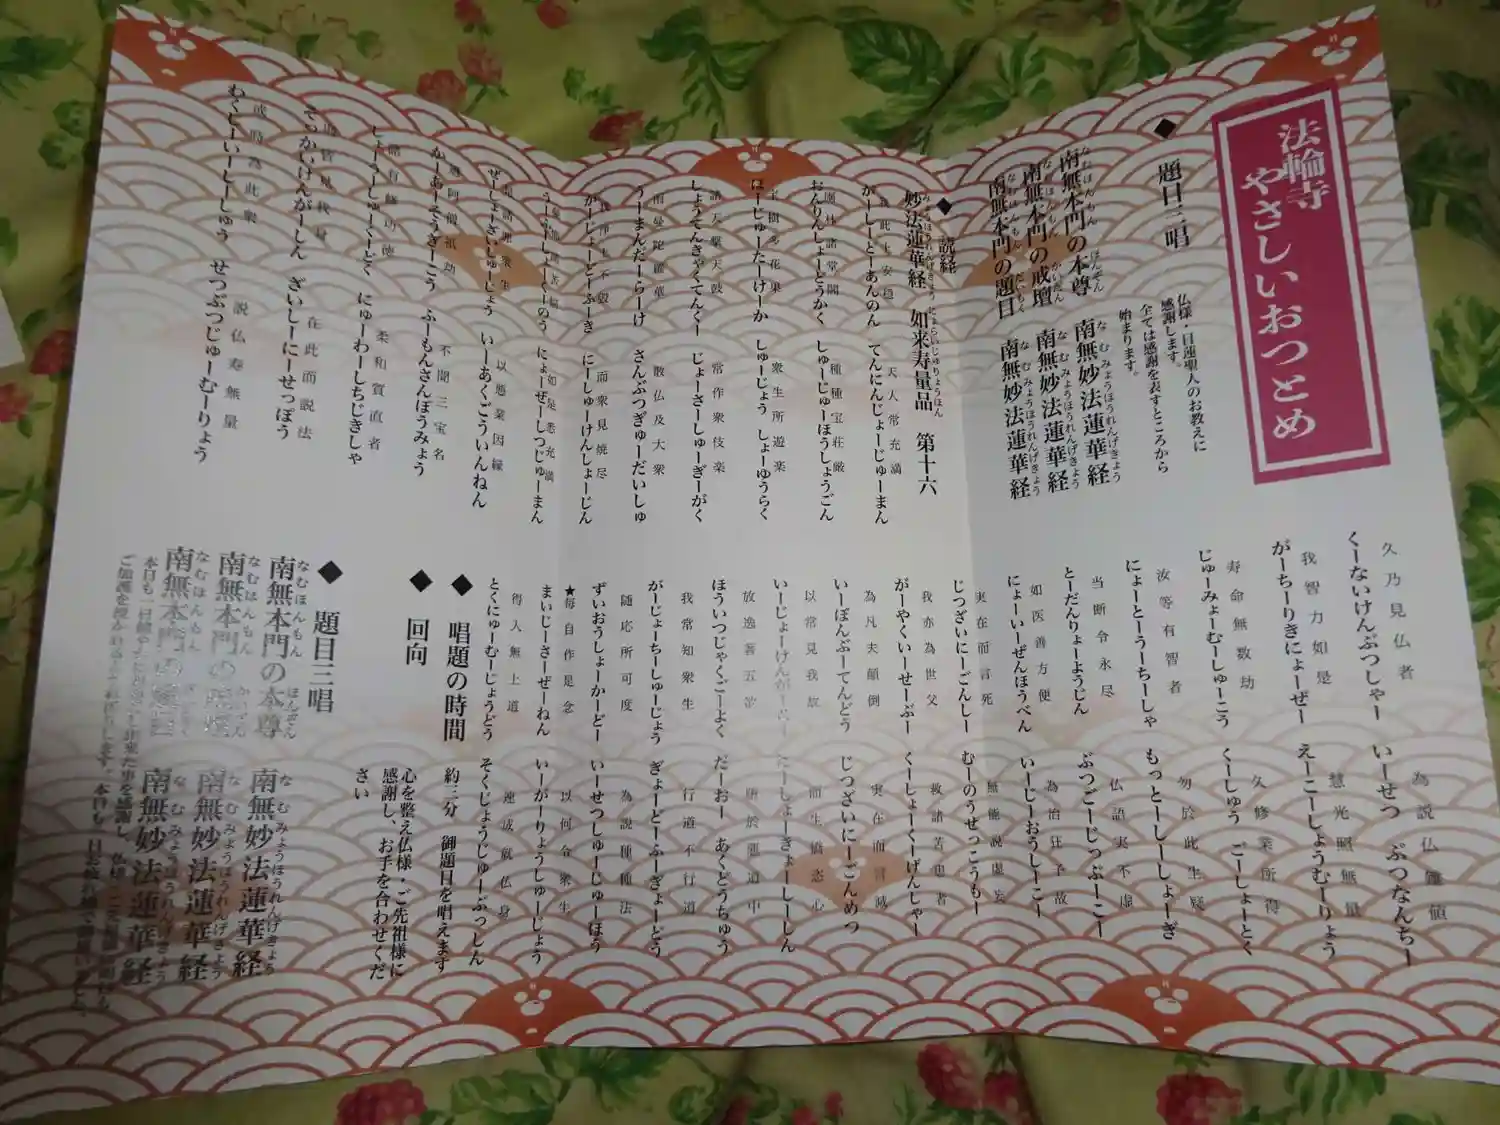 法輪寺
やさしいおつとめ
◆ 題目三唱
仏様・日蓮聖人のお教えに
感謝します。
全ては感謝を表すところから
始まります。
南無本門の本尊 南無妙法蓮華経
南無本門の戒壇 南無妙法蓮華経
南無本門の題目 南無妙法蓮華経
◆ 読経
妙法蓮華経 如来寿量品 第十六
我此土安穏 天人常充満
がーしーどーあんのん てんにんじょーじゅーまん
園林諸堂閣 種種宝荘厳
おんりんしょーどうかく しゅーじゅーほうしょうごん
宝樹多花果 衆生所遊楽
ほーじゅーたーけーか しゅーじょう しょーゆうらく
諸天撃天鼓 常作衆伎楽
しょうてんきゃくてんくー じょーさーしゅーぎーがく
雨曼陀羅華 散仏及大衆
うーまんだーらーけ さんぶつぎゅーだいしゅ
我浄土不毀 而衆見焼尽
がーじょーどーふーき にーしゅーけんしょーじん
如是悉充満
にょーぜーしつじゅーまん
是諸罪衆生 以悪業因縁
ぜーしょーざいしゅーじょう いーあくごういんねん
過阿僧祇劫 不聞三宝名
かーあーそうぎーこう ふーもんさんぼうみょう
諸有修功徳 柔和質直者
しょーうーしゅーくーどく にゅーわーしちじきしゃ
則皆見我身 在此而説法
そっかいけんがーしん ざいしーにーせっぽう
或時為此衆 説仏寿無量
わくじーいーしーしゅう せつぶつじゅーむーりょう
久乃見仏者 為説仏難値
くーないけんぶつしゃー いーせつ ぶつなんちー
我智力如是 慧光照無量
がーちーりきにょーぜー えーこーしょうむーりょう
寿命無数劫 久修業所得
じゅーみょーむーしゅーこう くーしゅう ごーしょーとく
汝等有智者 勿於此生疑
にょーとーうーちーしゃ もっとーしーしょーぎ
当断令永尽 仏語実不虚
とーだんりょーようじん ぶつごーじっぷーこー
如医善方便 為治狂子故
にょーいーぜんほうべん いーじーおうしーこー
実在而言死 無能説虚妄
じつざいにーごんしー むーのうせっこうもー
我亦為世父 救諸苦患者
がーやくいーせーぶー くーしょーくーげんしゃー
為凡夫顛倒 実在而言滅
いーぼんぶーてんどう じつざいにーごんめつ
以常見我故 而生憍恣心
いーじょーけんがーこー にーしょーきょーしーしん
放逸著五欲 堕於悪道中
ほういつじゃくごーよく だーおー あくどうちゅう
我常知衆生 行道不行道
がーじょーちーしゅーじょう ぎょーどーふーぎょーどう
随応所可度 為説種種法
ずいおうしょーかーどー いーせつしゅーじゅーほう
★毎自作是念 以何令衆生
まいじーさーぜーねん いーがーりょうしゅーじょう
得入無上道 速成就仏身
とくにゅーむーじょうどう そくじょうじゅーぶっしん
◆ 唱題の時間
約三分 御題目を唱えます
◆ 回向
心を整え仏様・ご先祖様に
感謝し、お手を合わせくだ
さい
◆ 題目三唱
南無本門の本尊 南無妙法蓮華経
南無本門の 南無妙法蓮華経
南無本門の 南無妙法蓮華経